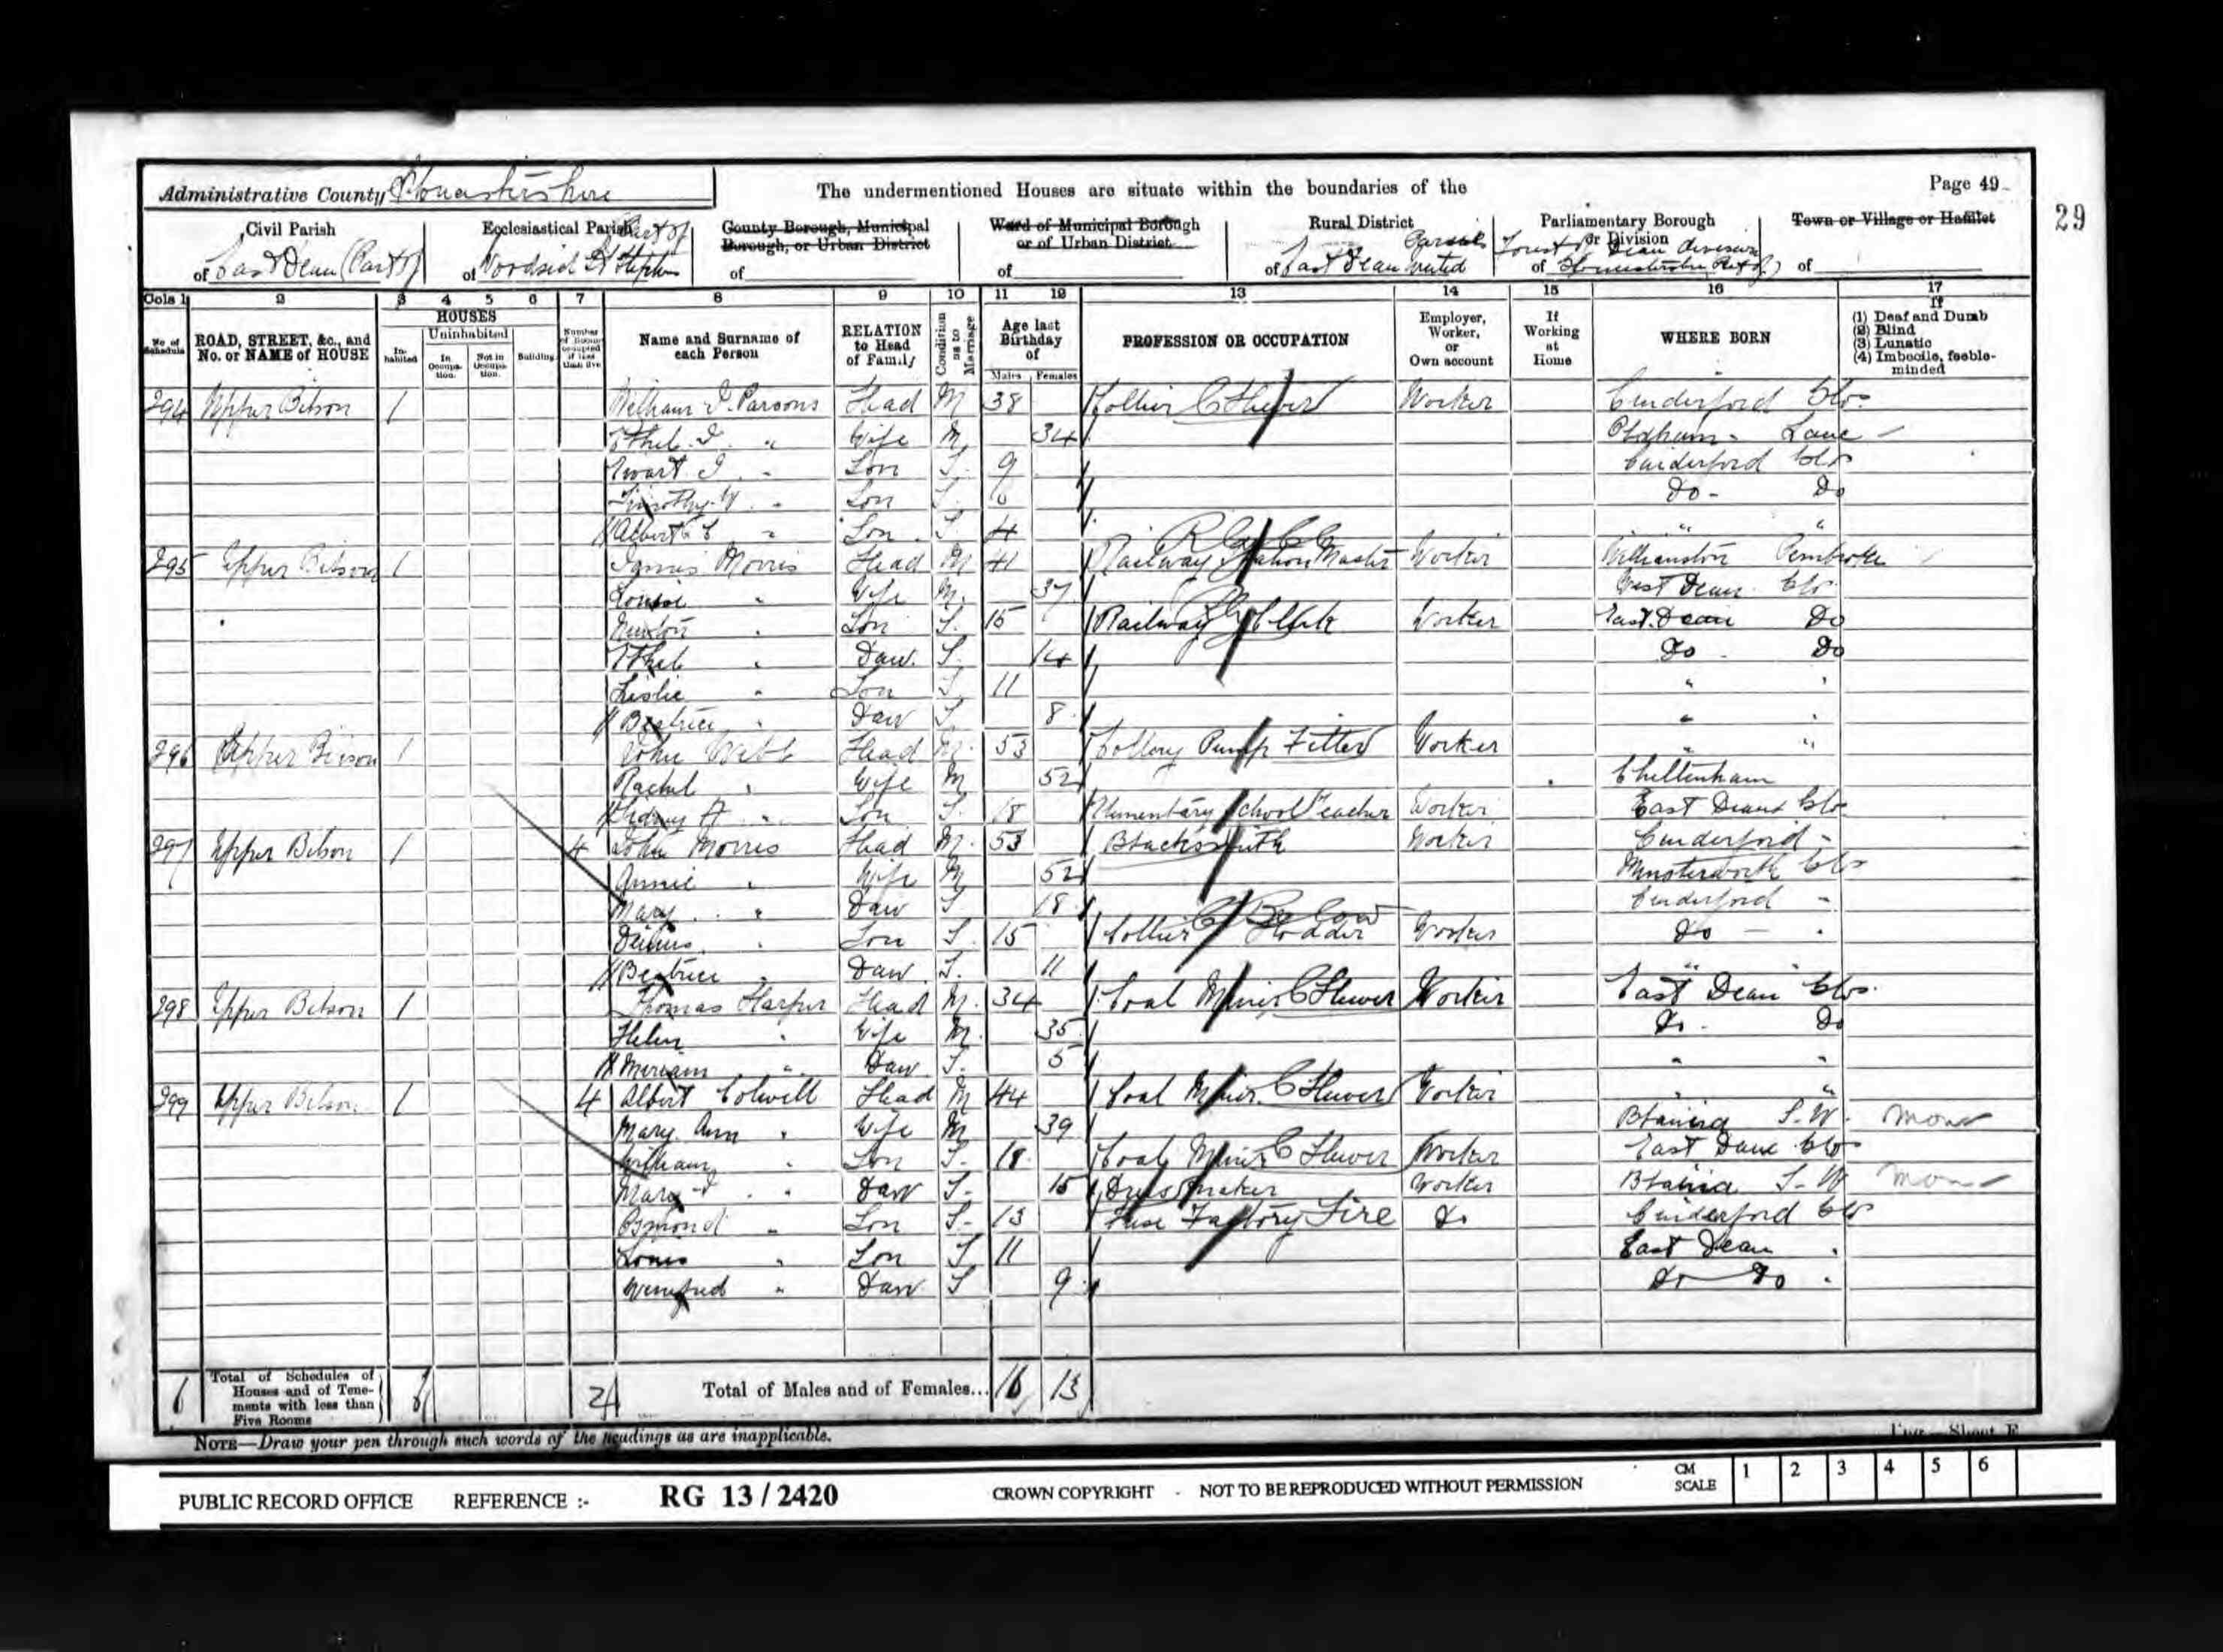 Administrative County Gloucestershire
The undermentioned Houses are situate within the boundaries of the
Page 49
29
Civil Parish of East Dean (Part of)
Ecclesiastical Parish Part of of Woodside St Stephen
County Borough, Municipal Borough, or Urban District of
Ward of Municipal Borough or of Urban District of
Rural District of East Dean United
Parliamentary Borough or Division of Forest of Dean division Gloucestershire (Part of)
Town or Village or Hamlet of
Cols 1 2 3 4 5 6 7 8 9 10 11 12 13 14 15 16 17
No of Schedule
ROAD, STREET, &c., and No. or NAME of HOUSE
HOUSES
Inhabited
Uninhabited
In Occupation.
Not in Occupation.
Building
Number of Rooms occupied if less than five
Name and Surname of each Person
RELATION to Head of Family
Condition as to Marriage
Age last Birthday of
Males Females
PROFESSION OR OCCUPATION
Employer, Worker, or Own account
If Working at Home
WHERE BORN
If
(1) Deaf and Dumb
(2) Blind
(3) Lunatic
(4) Imbecile, feeble-minded
294 Upper Bilson 1 William J. Parsons Head M 38 Collier C Hewer Worker Cinderford Glos
Ethel J. " Wife M 34 Oldham Lanc
Ewart J " Son S. 9 Cinderford Glos
Timothy W " Son S. 6 Do Do
Albert E " Son S 4 " "
295 Upper Bilson 1 James Morris Head M 41 Railway Station Master Worker Williamston Pembroke
Louise " Wife M. 37 West Dean Glos
Newton " Son S. 15 Railway Clerk Worker East Dean Do
Ethel " Daw. S. 14 Do Do
Leslie " Son S. 11 " "
Beatrice " Daw S. 8 " "
296 Upper Bilson 1 John Webb Head M. 53 Collery Pump Fitter Worker " "
Rachel " Wife M 52 Cheltenham
Sidney A " Son S. 18 Elementary School Teacher Worker East Dean Glos
297 Upper Bilson 1 4 John Morris Head M. 53 Blacksmith Worker Cinderford "
Annie " Wife M 52 Minsterworth Glos
Mary " Daw S 18 Cinderford "
Son S. 15 Collier Hodder C Below Worker Do "
Beatrice " Daw. S. 11 " "
298 Upper Bilson 1 Thomas Harper Head M. 34 Coal Miner C Hewer Worker East Dean Glos.
Helen " Wife M. 35 Do. Do
Meriam " Daw S. 5 " "
299 Upper Bilson 1 4 Albert Colwell Head M 44 Coal Miner. C Hewer Worker " "
Mary Ann " Wife M 39 Blaina S.W. Mon
William " Son S. 18 Coal Miner C Hewer Worker East Dane Glos
Mary J " Daw S. 15 Dressmaker Worker Blaina S.W Mon
Osmond " Son S. 13 Fuse Factory Fire Do Cinderford Glos
Louis " Son S 11 East Dean "
Winifred " Daw S 9 Do Do "
6 Total of Schedules of Houses and of Tenements with less than Five Rooms 6 2 Total of Males and of Females... 16 13
NOTE—Draw your pen through such words of the headings as are inapplicable.
PUBLIC RECORD OFFICE REFERENCE :- RG 13 / 2420 CROWN COPYRIGHT - NOT TO BE REPRODUCED WITHOUT PERMISSION CM SCALE 1 2 3 4 5 6